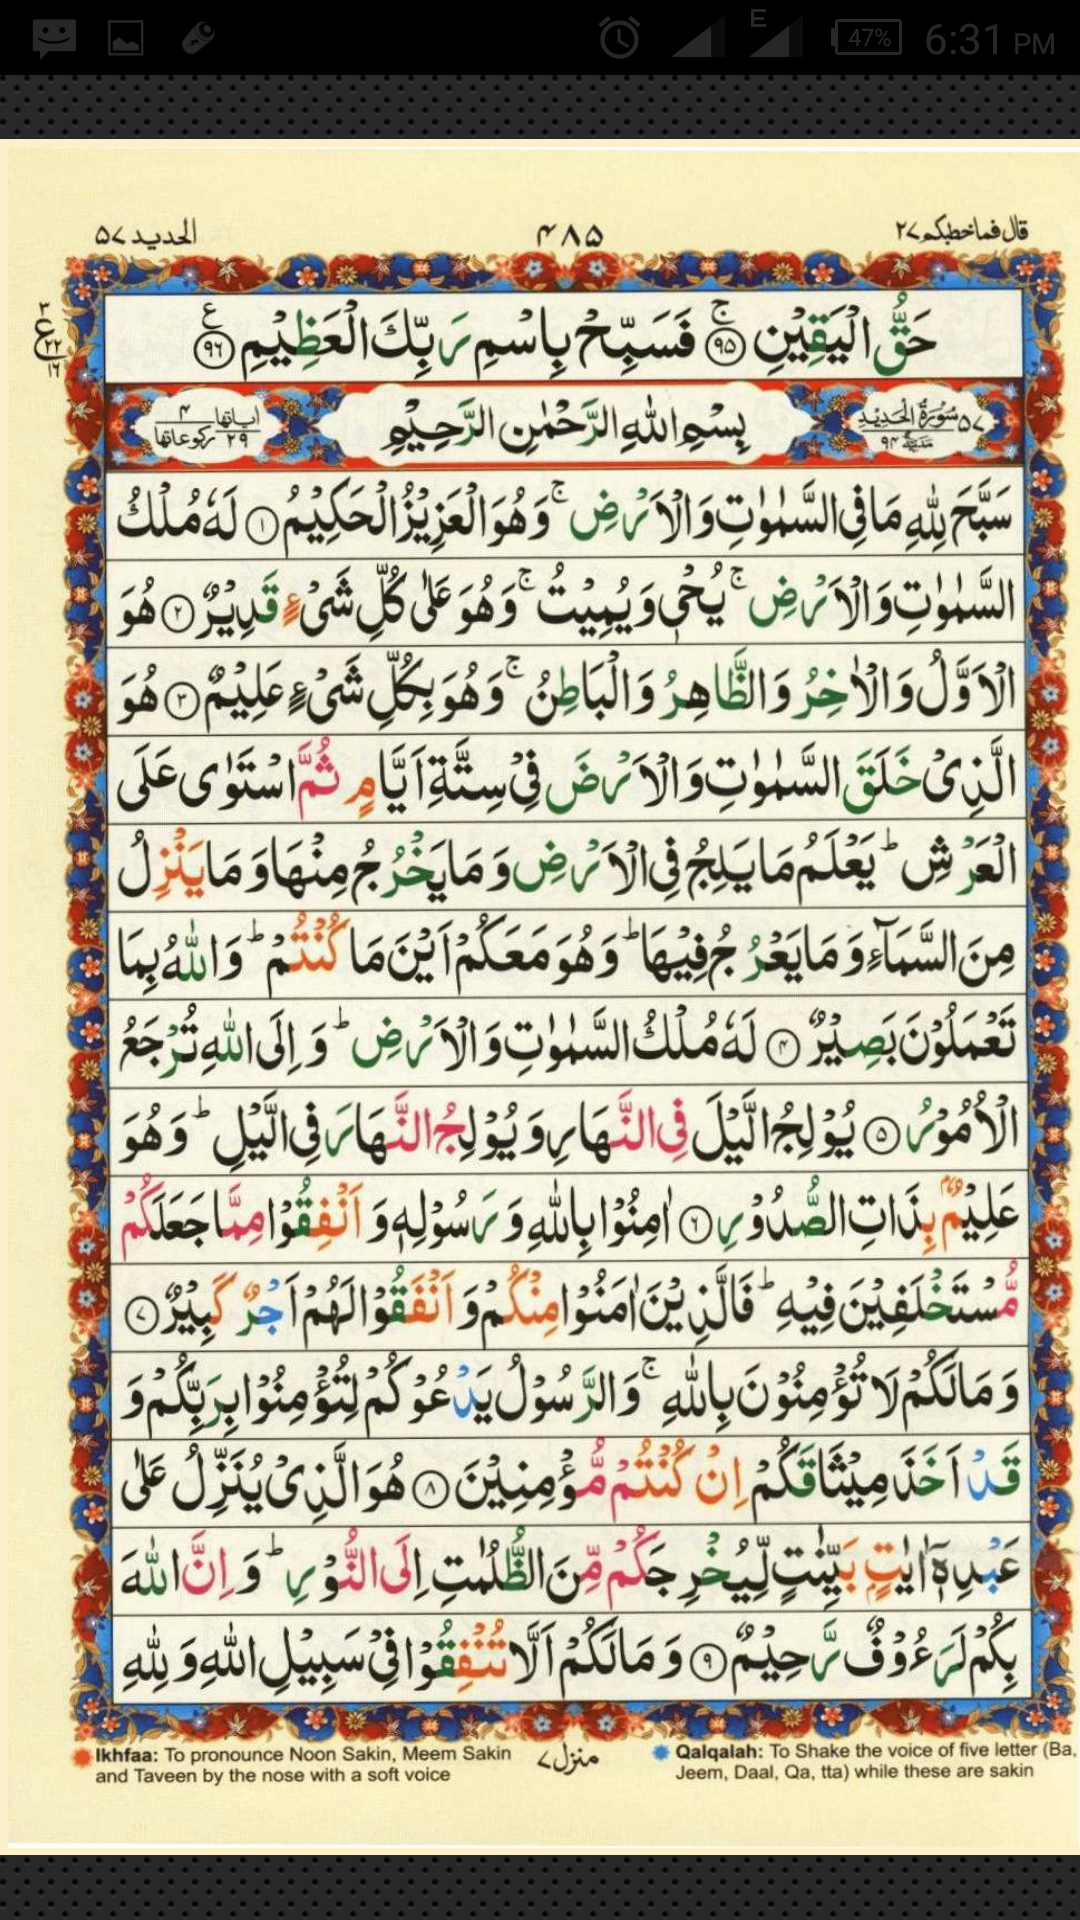 47% 6:31 PM
E
الحديد ۵۷ ۴۸۵ قال فما خطبكم ۲۷
حَقُّ الْيَقِيْنِ ۚ‏﴿۹۵﴾ فَسَبِّحْ بِاسْمِ رَبِّكَ الْعَظِيْمِ ﴿۹۶﴾ ع
۳ ع ۲۲ ۱۶
۵۷ سُوْرَةُ الْحَدِيْدِ مَدَنِيَّةٌ ۹۴ بِسْمِ اللّٰهِ الرَّحْمٰنِ الرَّحِيْمِ اٰیاتها ۲۹ رکوعاتها ۴
سَبَّحَ لِلّٰهِ مَا فِى السَّمٰوٰتِ وَ الْاَرْضِ ۚ وَهُوَ الْعَزِيْزُ الْحَكِيْمُ ﴿۱﴾ لَهٗ مُلْكُ
السَّمٰوٰتِ وَ الْاَرْضِ ۚ يُحْىٖ وَ يُمِيْتُ ۚ وَهُوَ عَلٰى كُلِّ شَىْءٍ قَدِيْرٌ ﴿۲﴾ هُوَ
الْاَوَّلُ وَ الْاٰخِرُ وَ الظَّاهِرُ وَ الْبَاطِنُ ۚ وَهُوَ بِكُلِّ شَىْءٍ عَلِيْمٌ ﴿۳﴾ هُوَ
الَّذِىْ خَلَقَ السَّمٰوٰتِ وَ الْاَرْضَ فِىْ سِتَّةِ اَيَّامٍ ثُمَّ اسْتَوٰى عَلَى
الْعَرْشِ ؕ يَعْلَمُ مَا يَلِجُ فِى الْاَرْضِ وَ مَا يَخْرُجُ مِنْهَا وَ مَا يَنْزِلُ
مِنَ السَّمَآءِ وَ مَا يَعْرُجُ فِيْهَا ؕ وَهُوَ مَعَكُمْ اَيْنَ مَا كُنْتُمْ ؕ وَ اللّٰهُ بِمَا
تَعْمَلُوْنَ بَصِيْرٌ ﴿۴﴾ لَهٗ مُلْكُ السَّمٰوٰتِ وَ الْاَرْضِ ؕ وَ اِلَى اللّٰهِ تُرْجَعُ
الْاُمُوْرُ ﴿۵﴾ يُوْلِجُ الَّيْلَ فِى النَّهَارِ وَ يُوْلِجُ النَّهَارَ فِى الَّيْلِ ؕ وَهُوَ
عَلِيْمٌۢ بِذَاتِ الصُّدُوْرِ ﴿۶﴾ اٰمِنُوْا بِاللّٰهِ وَ رَسُوْلِهٖ وَ اَنْفِقُوْا مِمَّا جَعَلَكُمْ
مُّسْتَخْلَفِيْنَ فِيْهِ ؕ فَالَّذِيْنَ اٰمَنُوْا مِنْكُمْ وَ اَنْفَقُوْا لَهُمْ اَجْرٌ كَبِيْرٌ ﴿۷﴾
وَ مَا لَكُمْ لَا تُؤْمِنُوْنَ بِاللّٰهِ ۚ وَ الرَّسُوْلُ يَدْعُوْكُمْ لِتُؤْمِنُوْا بِرَبِّكُمْ وَ
قَدْ اَخَذَ مِيْثَاقَكُمْ اِنْ كُنْتُمْ مُّؤْمِنِيْنَ ﴿۸﴾ هُوَ الَّذِىْ يُنَزِّلُ عَلٰى
عَبْدِهٖۤ اٰيٰتٍۭ بَيِّنٰتٍ لِّيُخْرِجَكُمْ مِّنَ الظُّلُمٰتِ اِلَى النُّوْرِ ؕ وَ اِنَّ اللّٰهَ
بِكُمْ لَرَءُوْفٌ رَّحِيْمٌ ﴿۹﴾ وَ مَا لَكُمْ اَلَّا تُنْفِقُوْا فِىْ سَبِيْلِ اللّٰهِ وَ لِلّٰهِ
Ikhfaa: To pronounce Noon Sakin, Meem Sakin
and Taveen by the nose with a soft voice
منزل ۷
Qalqalah: To Shake the voice of five letter (Ba,
Jeem, Daal, Qa, tta) while these are sakin